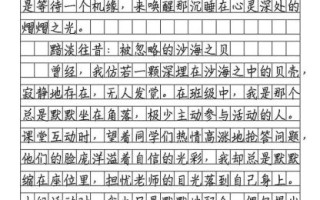 是等待一个机缘，来唤醒那沉睡在心灵深处的
熠熠之光。
黯淡往昔：被忽略的沙海之贝
曾经，我仿若一颗深埋在沙海之中的贝壳，
寂静地存在，无人发觉。在班级中，我是那个
总是默默坐在角落，极少主动参与活动的人。
课堂互动时，望着同学们热情高涨地抢答问题，
他们的脸庞洋溢着自信的光彩，我却总是默默
缩在座位里，担忧老师的目光落到自己身上。